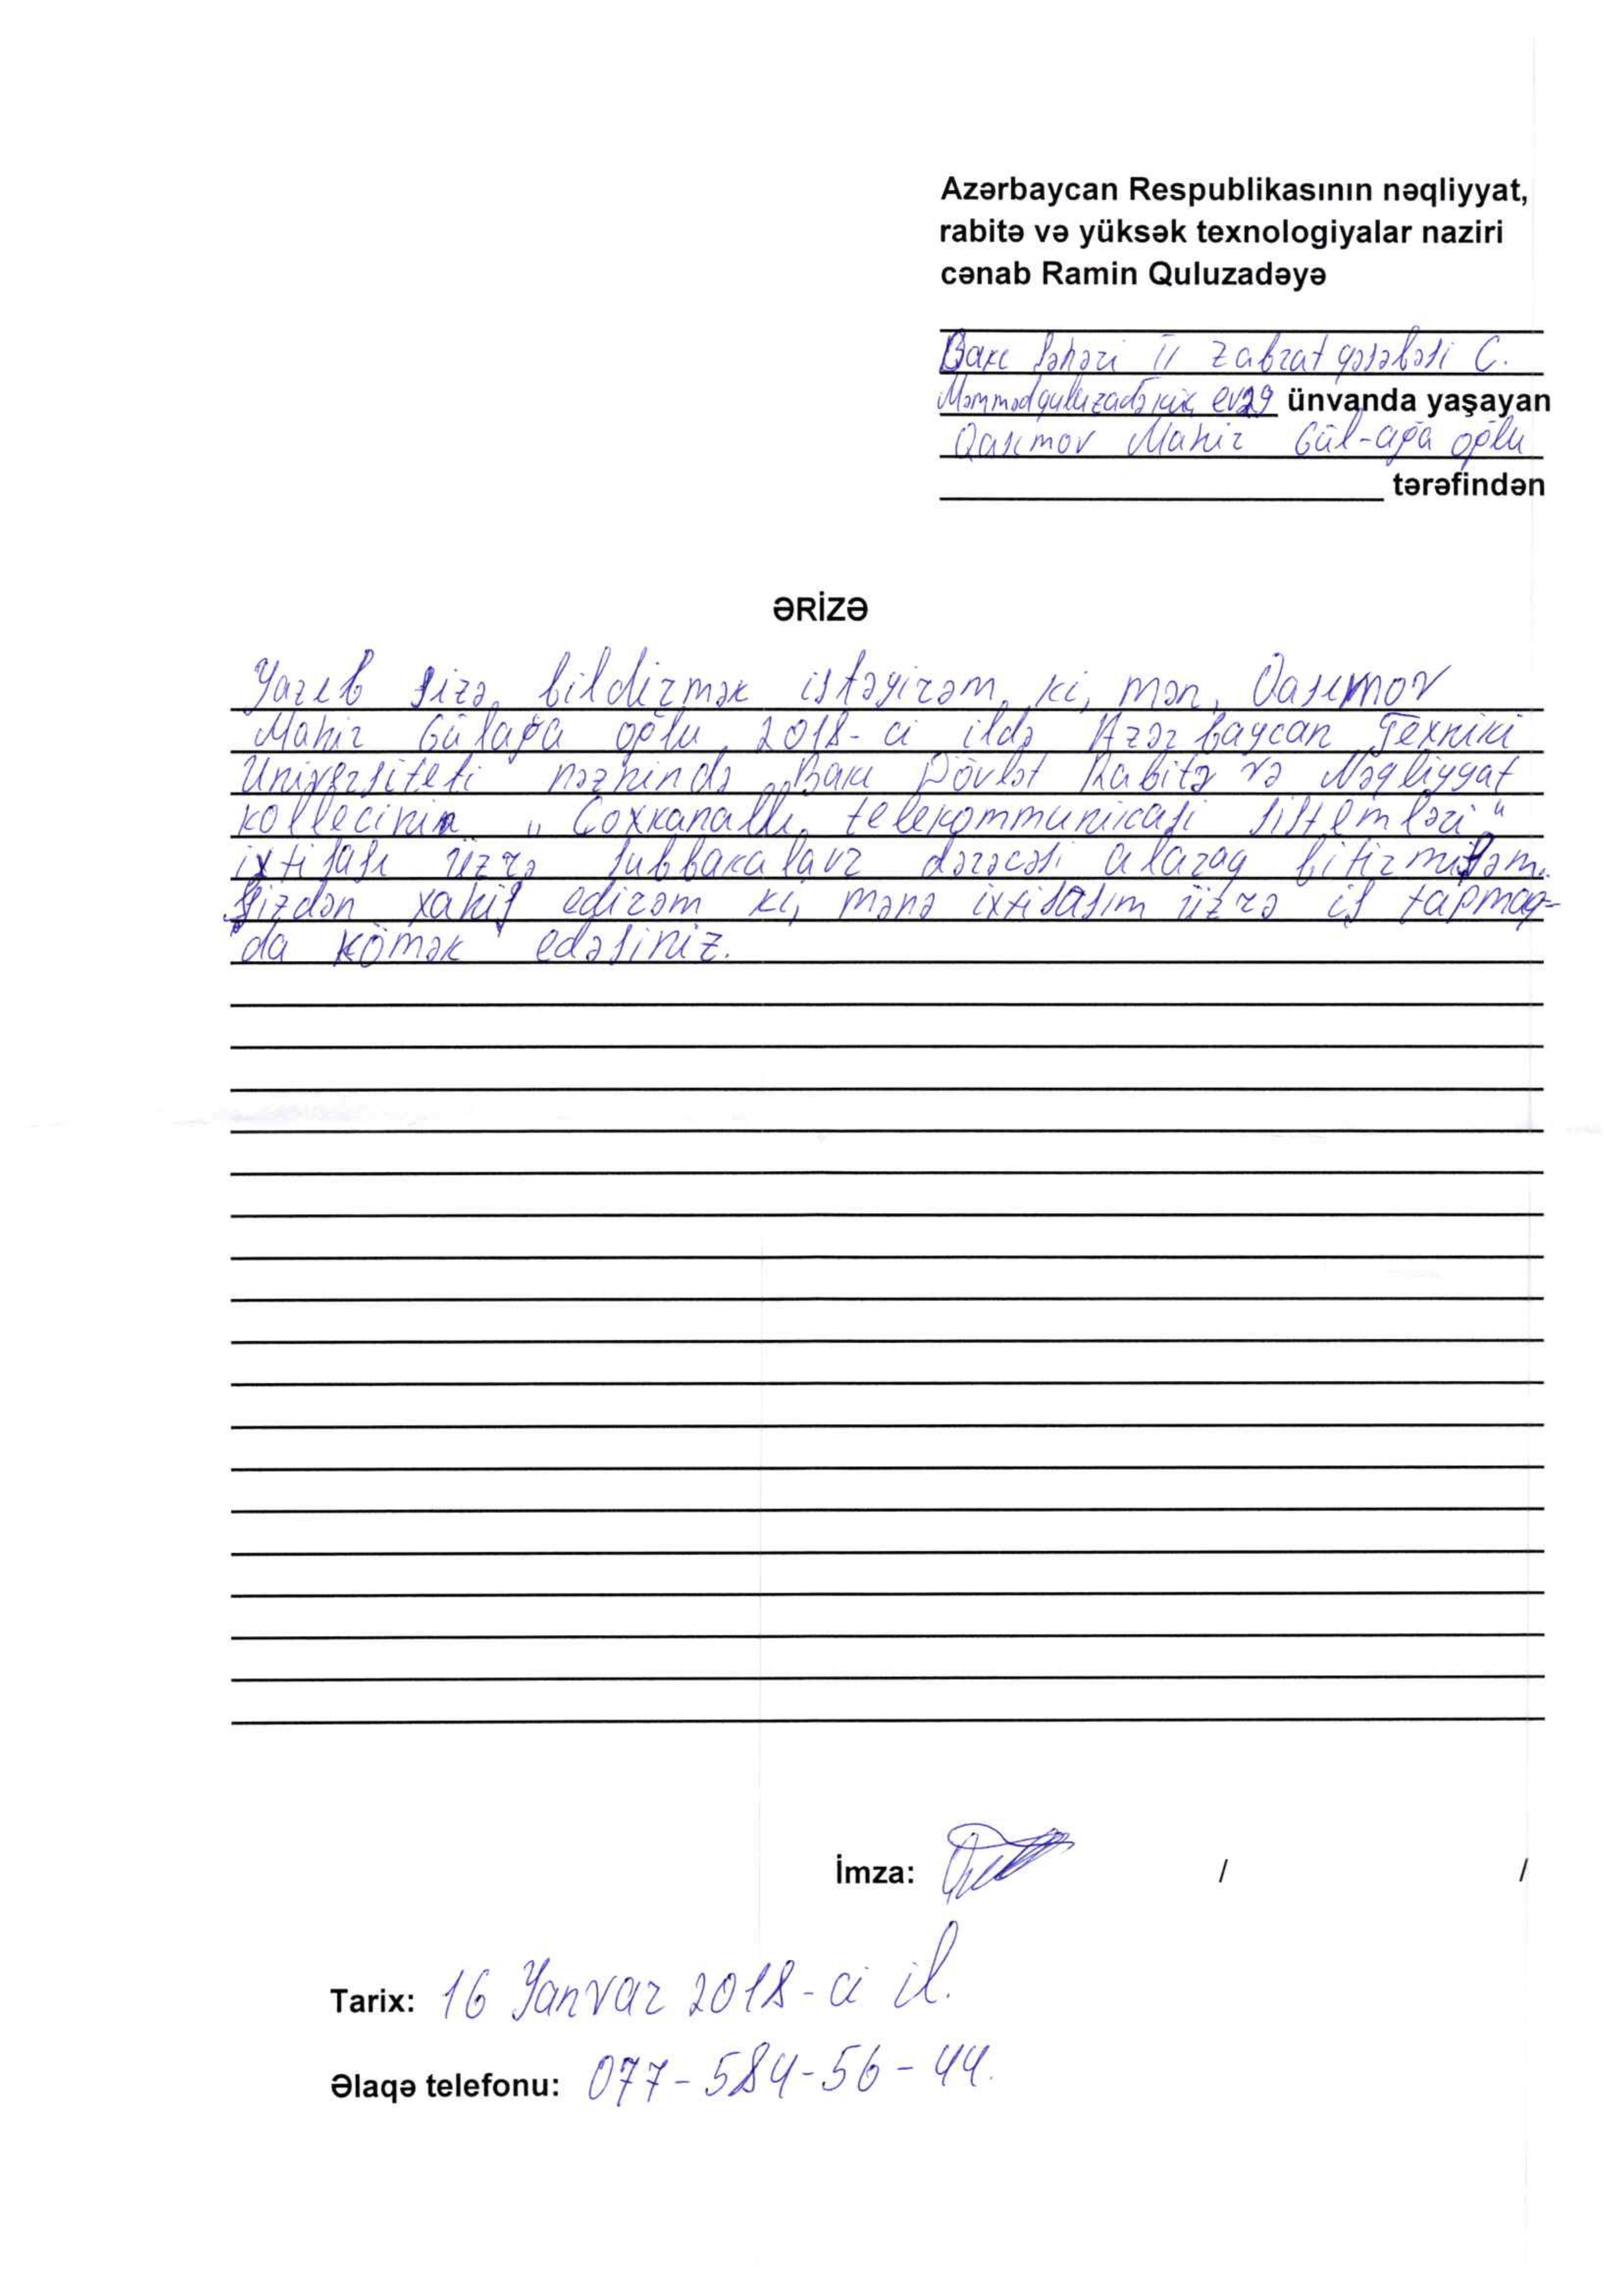 Azərbaycan Respublikasının nəqliyyat,
rabitə və yüksək texnologiyalar naziri
cənab Ramin Quluzadəyə
Bakı şəhəri II Zabrat qəsəbəsi C.
Məmmədquluzadə küç ev29 ünvanda yaşayan
Qasımov Mahir Gül-ağa oğlu
tərəfindən
ƏRİZƏ
Yazıb sizə bildirmək istəyirəm ki, mən, Qasımov
Mahir Gülağa oğlu 2018-ci ildə Azərbaycan Texniki
Universiteti nəznində Bakı Dövlət Rabitə və Nəqliyyat
kollecinin „Çoxkanallı telekommunikasi sistemləri"
ixtisası üzrə subbakalavr dərəcəsi alaraq bitirmişəm.
Sizdən xahiş edirəm ki, mənə ixtisasım üzrə iş tapmaq-
da kömək edəsiniz.
İmza: / /
Tarix: 16 Yanvar 2018-ci il.
Əlaqə telefonu: 077-584-56-44.